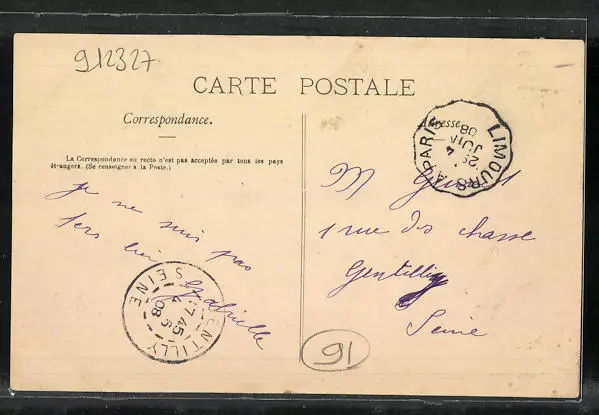 912327
CARTE POSTALE
Correspondance.
Adresse
La Correspondance au recto n'est pas acceptée par tous les pays
étrangers. (Se renseigner à la Poste.)
LIMOURS A PARIS
2º
4
JUIN
08
je ne suis pas
Gabrielle
M
1 rue des chasse
Gentilly
Seine
GENTILLY
SEINE
7 45
4 - 6
08
91